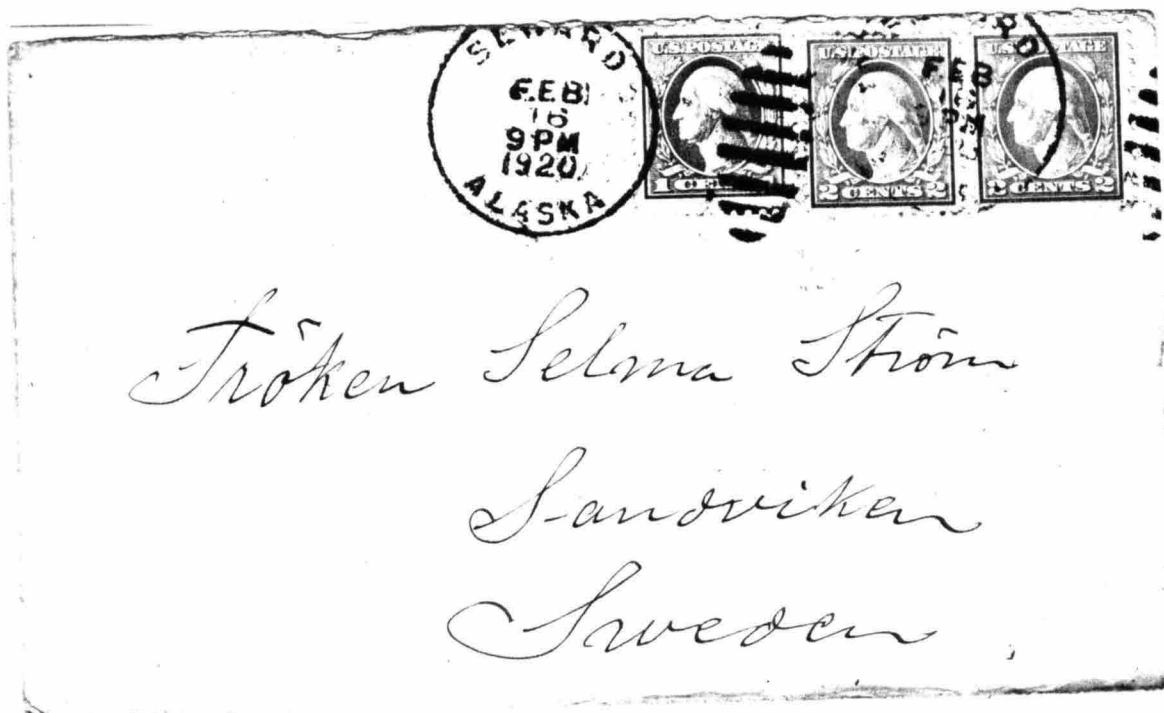 SEWARD
FEB
16
9 PM
1920
ALASKA
U.S. POSTAGE
1 CE
U.S. POSTAGE
2 CENTS 2
U.S. POSTAGE
2 CENTS 2
RD
FEB
Fröken Selma Ström
Sandviken
Sweden